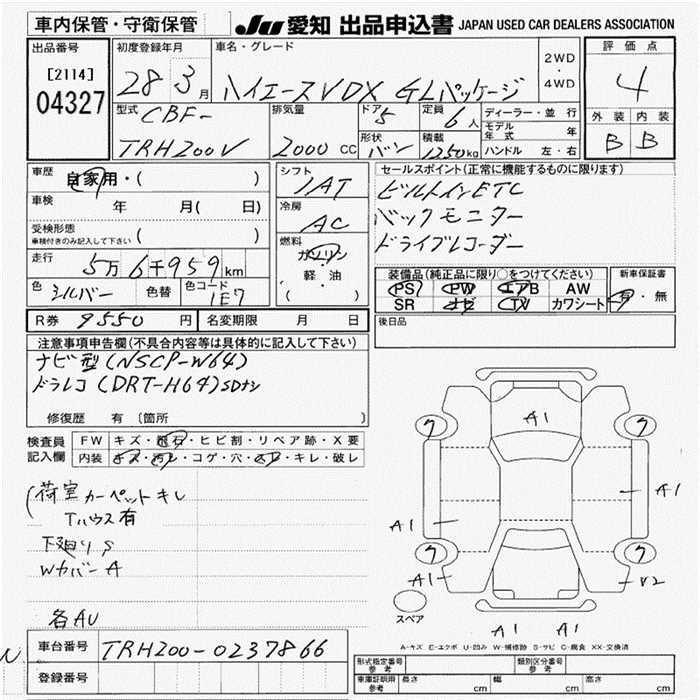 車内保管・守衛保管
JU 愛知 出品申込書 JAPAN USED CAR DEALERS ASSOCIATION
出品番号
[2114]
04327
初度登録年月
28 3月
車名・グレード
ハイエースVDX GLパッケージ
2WD
・
4WD
評価点
4
外装 内装
B B
型式
CBF-
TRH200V
排気量
2000 CC
ドア
5
定員
6人
形状
バン
積載
1250kg
ディーラー・並行
モデル年式 年
ハンドル 左・右
車歴
自家用・( )
車検
年 月( 日)
受検形態
車検付きのみ記入して下さい ( )
走行
5万6千959km
色
シルバー
色替
色コード
1E7
シフト
IAT
冷房
AC
燃料
ガソリン
軽・油
( )
セールスポイント(正常に機能するものに限ります)
ビルトインETC
バックモニター
ドライブレコーダー
装備品(純正品に限り○をつけてください)
PS PW エアB AW
SR ナビ TV カワシート
新車保証書
有・無
R券 9550円
名変期限 月 日
後日品
注意事項申告欄(不具合内容等は具体的に記入して下さい)
ナビ型(NSCP-W64)
ドラレコ(DRT-H64)SDナシ
修復歴 有 〔箇所 〕
検査員
記入欄
FW キズ・飛石・ヒビ割・リペア跡・X要
内装 キズ・汚レ・コゲ・穴・スレ・キレ・破レ
(荷室カーペットキレ
Tハウス有
下廻りS
WカバーA
各AU
A1
ク ク
A1
A1
ク ク
A1
V2
スペア
A1 A1
A-キズ E-エクボ U-凹み W-補修跡 S-サビ C-腐食 XX-交換済
車台番号 TRH200-0237866
登録番号
形式指定番号
参考
類別区分番号
参考
車庫証明用
参考
長さ cm 幅 cm 高さ cm